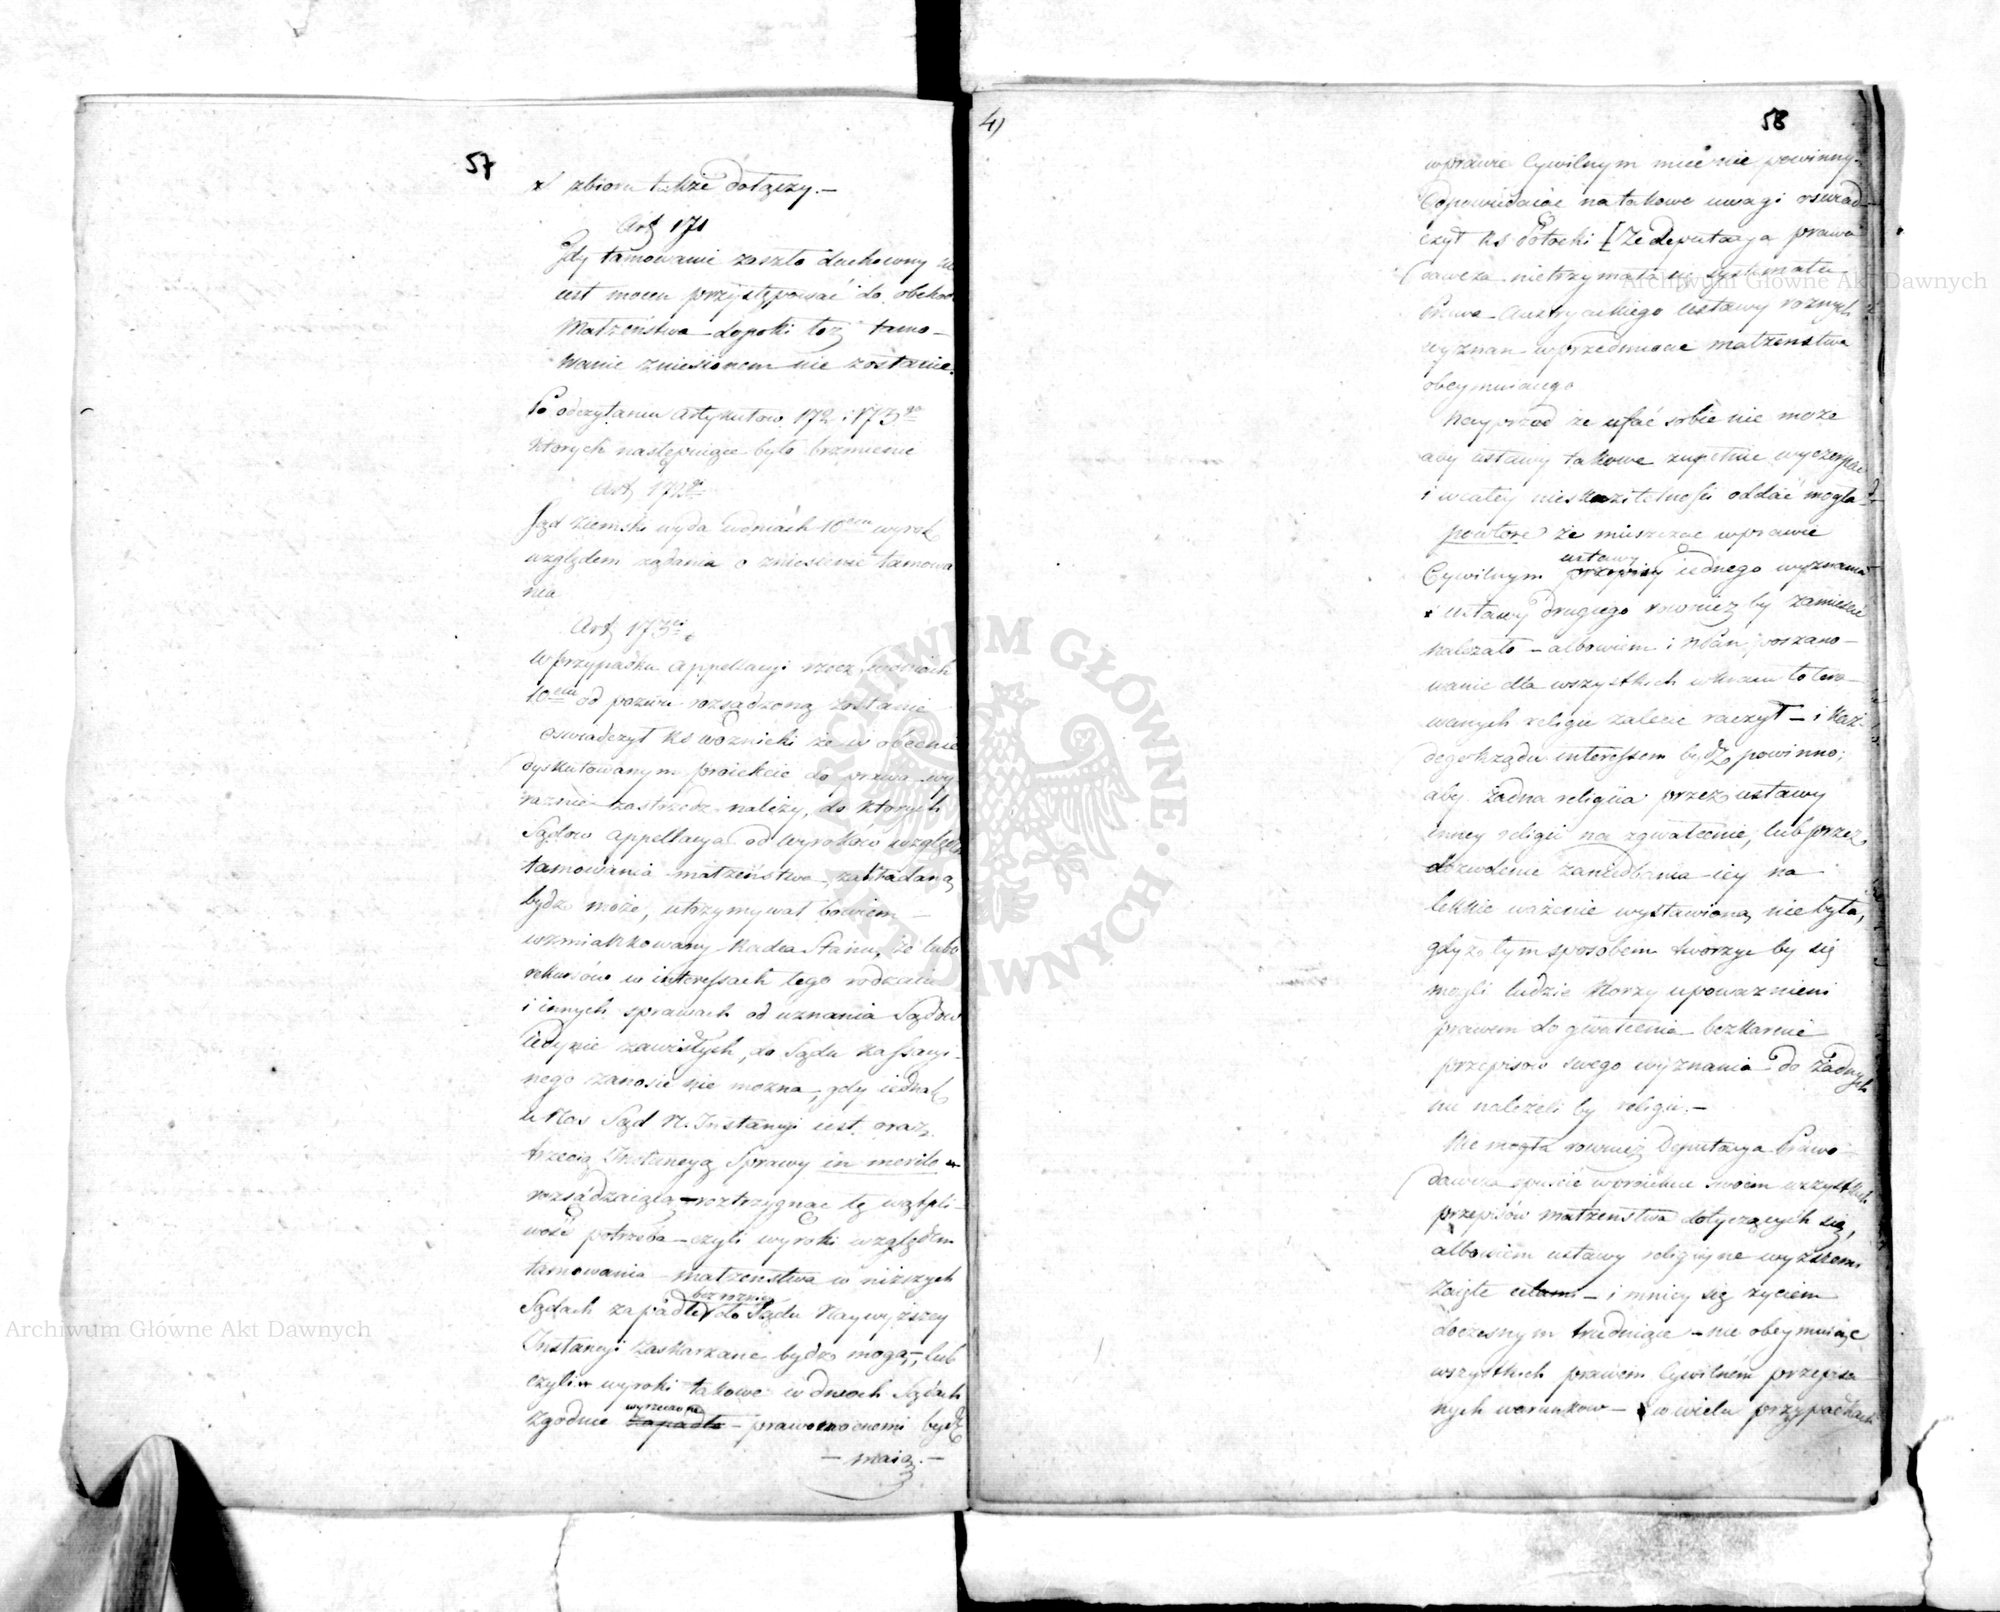 57
zbioru także dołączy. –
Art 171
Gdy tamowanie zaszło duchowny nie
iest mocen przystępować do obchodu
Małżeństwa dopóki toż tamo-
wanie zniesionem nie zostanie.
Po odczytaniu Artykułów 172 i 173go
których następuiące było brzmienie
Art 172
Sąd Ziemski wyda w dniach 10ciu wyrok
względem żądania o zniesienie tamowa
nia
Art 173ci
W przypadku appellacyi rzecz w dniach
10ciu od pozwu rozsądzoną zostanie
oświadczył KS Woźnicki że w obecnie
dyskutowanym proiekcie do prawa wy-
raźnie zastrzedz należy, do których
Sądów appellacya od wyroków względem
tamowania małżeństwa zakładaną
bydź może, utrzymywał bowiem –
wzmiankowany Radca Stanu, iż lubo
rekursów w interessach tego rodzaiu
i innych sprawach od uznania Sądów
iedynie zawisłych, do Sądu Kassacyi-
nego zanosić nie można, gdy iednak
u Nas Sąd N. Instancyi iest oraz
trzecią Instancyą Sprawy in merito
rozsądzaiącą – roztrzygnąć tę wątpli-
wość potrzeba – czyli wyroki względem
tamowania małżeństwa w niższych
bez różnicy
Sądach zapadłe do Sądu Naywyższey
Instancyi zaskarżane bydź mogą –, lub
czyli wyroki takowe w dwóch Sądach
wyrzeczone
zgodnie zapadłe – prawomocnemi bydź
– maią. –
4)
58
w prawie Cywilnym mieć nie powinny.
Odpowiadaiąc na takowe uwagi oświad-
czył KS Potocki [że Deputacya prawo
dawcza nietrzymała się systematu
Prawa Austryackiego ustawy rożnych
wyznań w przedmiocie małżeństwa
obeymuiącego
Nayprzód że ufać sobie nie może
aby ustawy takowe zupełnie wyczerpać
i w całey nieskazitelności oddać mogła –
powtóre że mieszcząc w prawie
ustawy
Cywilnym przepisy iednego wyznania
ustawy drugiego również by zamieścić
należało – albowiem i NPan poszano-
wanie dla wszystkich w kraiu tolero-
wanych religii zalecić raczył – i każ
dego rządu interessem bydź powinno;
aby żadna religiia przez ustawy
inney religii na zgwałcenie, lub przez
dozwolenie zaniedbania iey na
lekkie ważenie wystawioną nie była,
gdyż tym sposobem tworzyć by się
mogli ludzie którzy upoważnieni
prawem do gwałcenia bezkarnie
przepisów swego wyznania do żadnych
nie należeli by religii. –
Nie mogła również Deputacya Prawo-
dawcza spuścić w proiekcie swoim wszystkich
przepisów małżeństwa dotyczących się,
albowiem ustawy religiyne wyższemi
zaięte celami – i mniey się życiem
doczesnym trudniące – nie obeymuiąc
wszystkich prawem Cywilném przepisa
nych warunków – w wielu przypadkach
Archiwum Główne Akt Dawnych
Archiwum Główne Akt Dawnych
ARCHIWUM GŁÓWNE AKT DAWNYCH